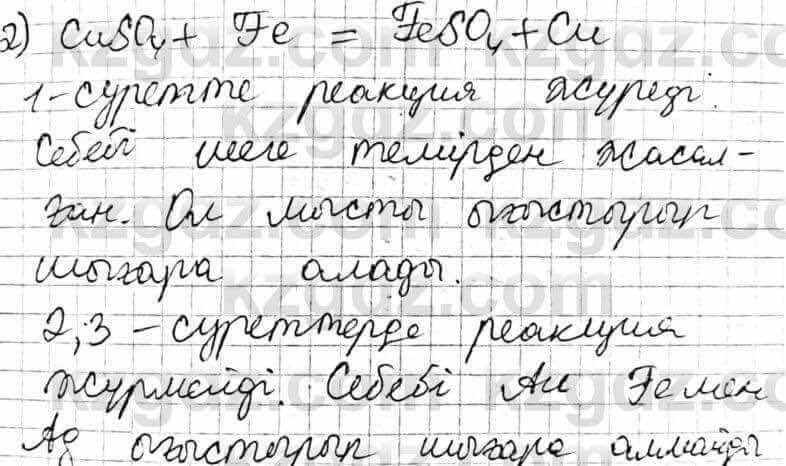 2) CuSO4 + Fe = FeSO4 + Cu
1-суретте реакция жүреді.
Себебі шеге темірден жасал-
ған. Ол мысты ығыстырып
шығара алады.
2,3 - суреттерде реакция
жүрмейді. Себебі Au Fe мен
Ag ығыстырып шығара алмайды